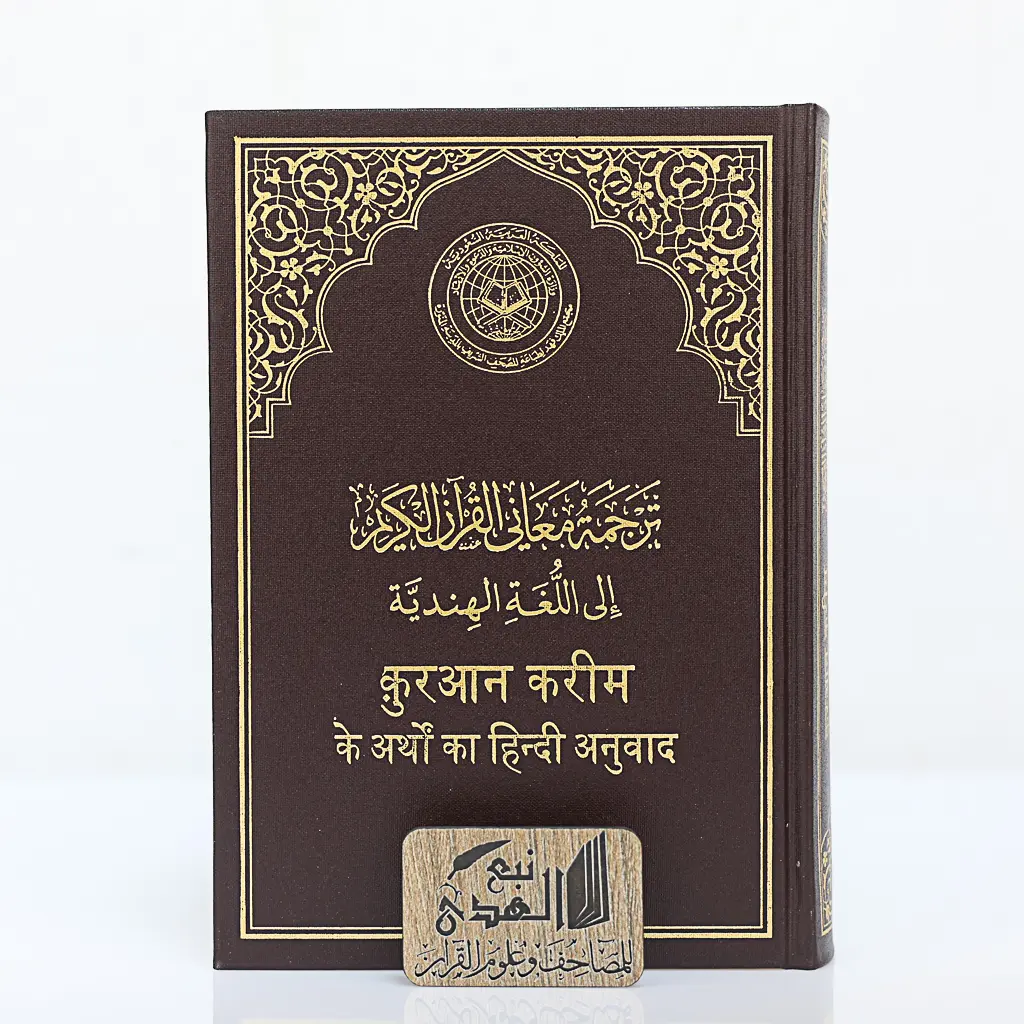 المملكة العربية السعودية
وزارة الشؤون الإسلامية والدعوة والإرشاد
مجمع الملك فهد لطباعة المصحف الشريف بالمدينة المنورة
تَرْجَمَةُ مَعَانِي القُرْآنِ الكَرِيْمِ
إِلى اللُّغَةِ الهِنديَّة
क़ुरआन करीम
के अर्थों का हिन्दी अनुवाद
نبع
الهدى
للمصاحف وعلوم القرآن